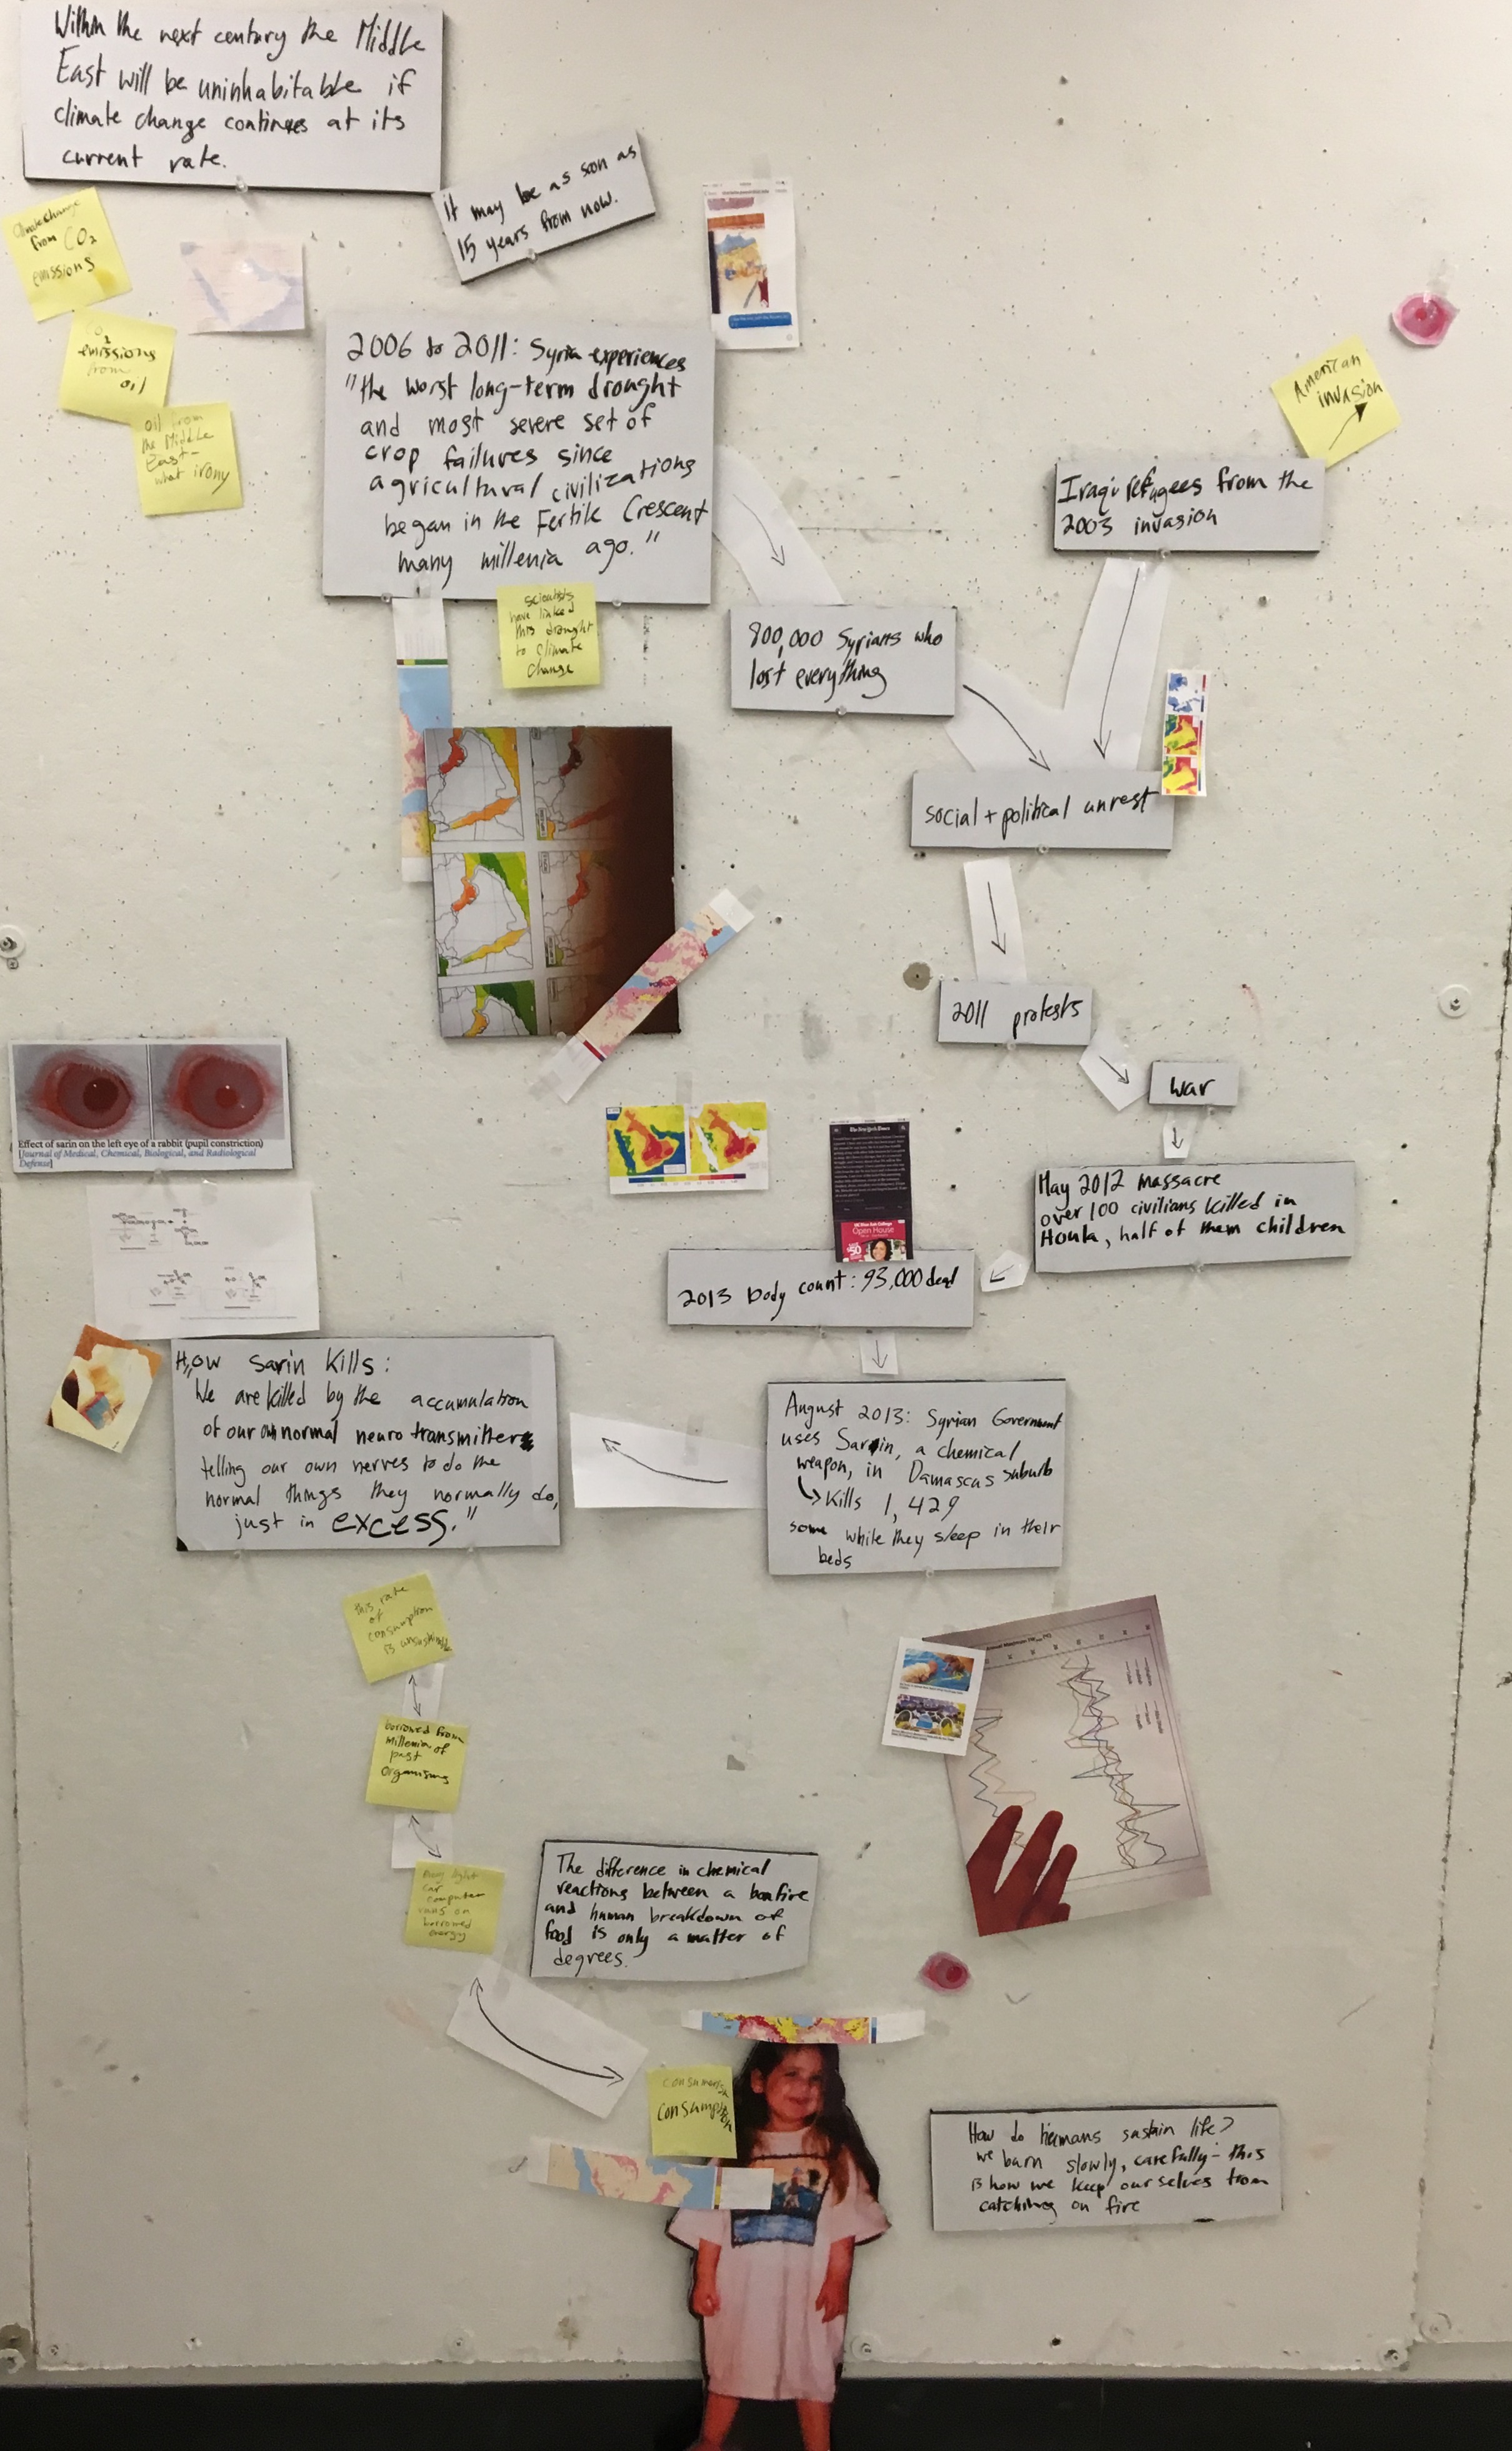 Within the next century the Middle
East will be uninhabitable if
climate change continues at its
current rate.
it may be as soon as
15 years from now.
Climate change
from CO2
emissions
CO2
emissions
from
oil
oil from
the Middle
East-
what irony
2006 to 2011: Syria experiences
"the worst long-term drought
and most severe set of
crop failures since
agricultural civilizations
began in the Fertile Crescent
many millenia ago."
scientists
have linked
this drought
to climate
change
American
invasion
Iraqi refugees from the
2003 invasion
800,000 Syrians who
lost everything
social + political unrest
2011 protests
war
May 2012 massacre
over 100 civilians killed in
Houla, half of them children
The New York Times
Open House
$50
2013 body count: 93,000 dead
August 2013: Syrian Government
uses Sarin, a chemical
weapon, in Damascus suburb
Kills 1,429
some while they sleep in their
beds
Effect of sarin on the left eye of a rabbit (pupil constriction)
[Journal of Medical, Chemical, Biological, and Radiological
Defense]
How Sarin Kills:
"We are killed by the accumulation
of our own normal neurotransmitters
telling our own nerves to do the
normal things they normally do,
just in excess."
this rate
of
consumption
is unsustainable
borrowed from
millenia of
past
organisms
light
car
computer
runs on
borrowed
energy
The difference in chemical
reactions between a bonfire
and human breakdown of
food is only a matter of
degrees.
consumption
How do humans sustain life?
we burn slowly, carefully - this
is how we keep ourselves from
catching on fire